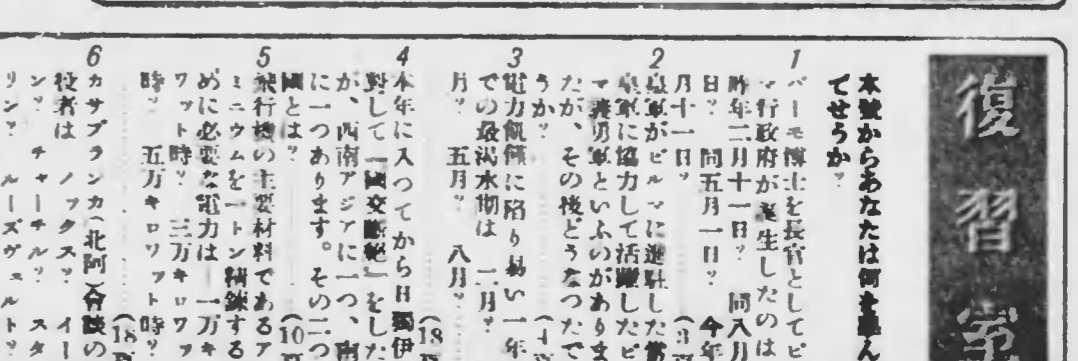 復習室
本號からあなたは何を學ん
でせうか？
1
バーモ博士を長官としてビ
マ行政府が誕生したのは
昨年二月十一日？ 同八月
日？ 同五月一日？ 今年
月十一日？ (3
2
皇軍がビルマに進駐した當
皇軍に協力して活躍したビ
マ義勇軍といふのがありま
たが、その後どうなつたで
うか？ (4
3
電力飢饉に陷り易い一年
での最渇水期は 二月？
月？ 五月？ 八月？
(18
4
本年に入つてから日獨伊
對して「國交斷絶」をした
が、西南アジアに一つ、南
に一つあります。その二つ
國とは？ (10
5
飛行機の主要材料であるア
ミニウムを一トン精鍊する
めに必要な電力は 一万キ
ワット時？ 三万キロワッ
時？ 五万キロワット時？
(18
6
カサブランカ(北阿)會談の
役者は ノックス？ イー
ン？ チャーチル？ スタ
リン？ ルーズヴェルト？